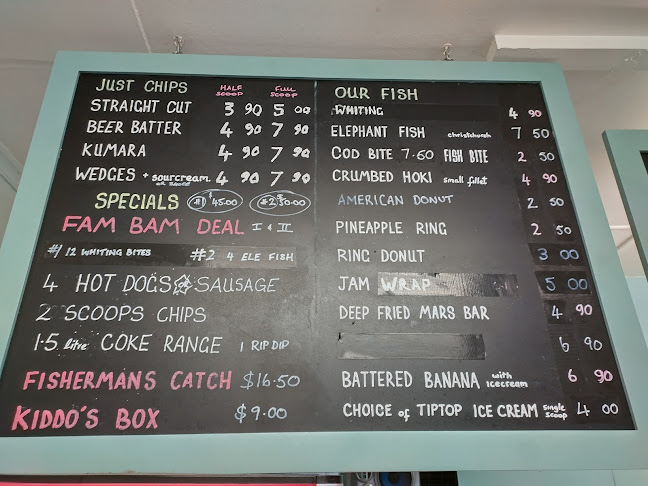 JUST CHIPS HALF SCOOP FULL SCOOP
STRAIGHT CUT 3 90 5 00
BEER BATTER 4 90 7 90
KUMARA 4 90 7 90
WEDGES + sourcream 4 90 7 90
SPECIALS #1 $45.00 #2 $50.00
FAM BAM DEAL I & II
#1 12 WHITING BITES #2 4 ELE FISH
4 HOT DOGS SAUSAGE
2 SCOOPS CHIPS
1.5 litre COKE RANGE 1 RIP DIP
FISHERMANS CATCH $16.50
KIDDO'S BOX $9.00
OUR FISH
WHITING 4 90
ELEPHANT FISH christchurch 7 50
COD BITE 7.60 FISH BITE 2 50
CRUMBED HOKI small fillet 4 90
AMERICAN DONUT 2 50
PINEAPPLE RING 2 50
RING DONUT 3 00
JAM WRAP 5 00
DEEP FRIED MARS BAR 4 90
6 90
BATTERED BANANA with icecream 6 90
CHOICE of TIPTOP ICE CREAM single scoop 4 00